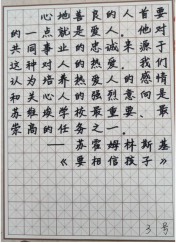 心地善良的人,首要
的一点就是爱人。他对
共同事业的忠诚来源于
这种对人的热爱。我们
认为培养人的热爱感情
和关心人的强烈意向,是
苏维埃学校最重要、最
崇高的任务之一。
——苏霍姆林斯基
《要相信孩子》
3号